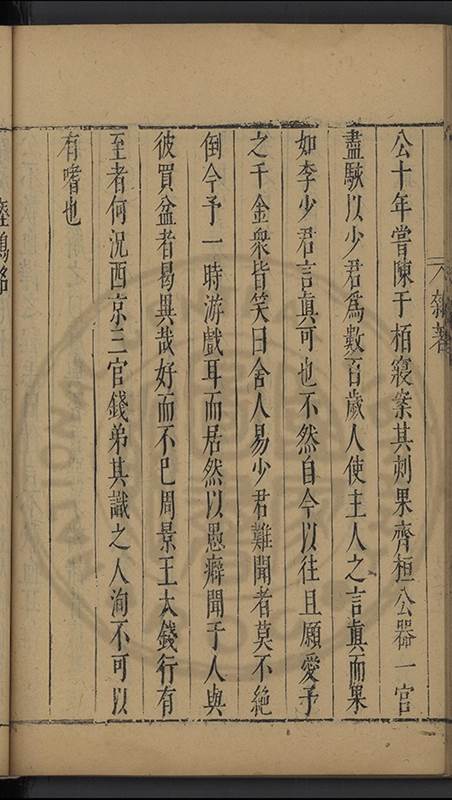 雜著
公十年嘗陳于栢寢案其刺果齊桓公器一官
盡駭以少君爲數百歲人使主人之言真而果
如李少君言真可也不然自今以往且願愛予
之千金衆皆笑曰舍人易少君難聞者莫不絶
倒今予一時游戲耳而居然以愚癖聞于人與
彼買盆者曷異哉好而不已周景王大錢行有
至者何況西京三官錢弟其識之人洵不可以
有嗜也
瘞鶴銘